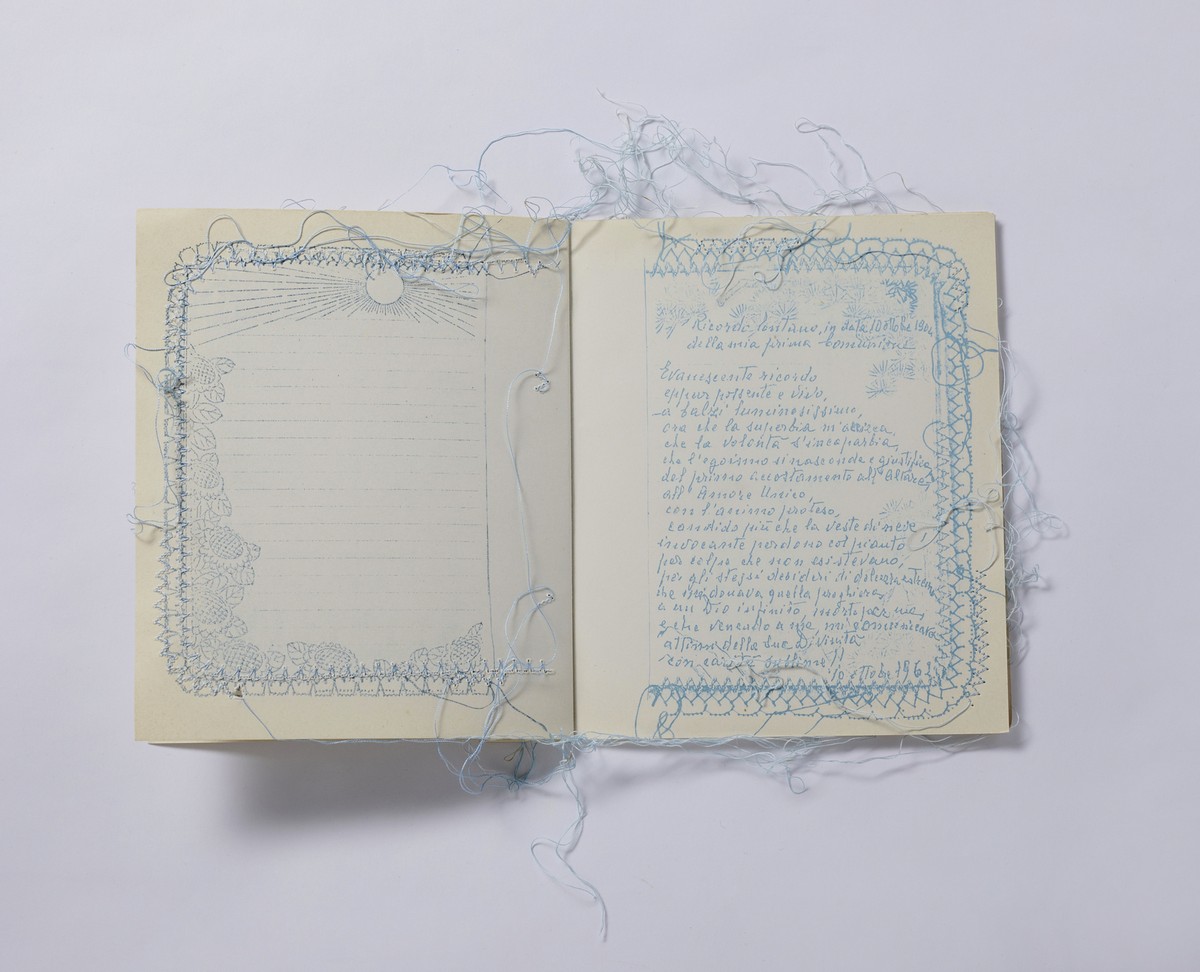 Ricordo lontano, in data 10 ottobre 1904
della mia prima Comunione
Evanescente ricordo
eppur possente e vivo,
a balzi luminosissimo,
ora che la superbia m'acceca
che la volontà s'incaparbia,
che l'egoismo si nasconde e giustifica
del primo accostamento all'Altare,
all'Amore Unico,
con l'animo proteso,
candido più che la veste di neve
invocante perdono col pianto
per colpe che non esistevano,
per gli stessi desideri di dolcezza
che mi donava quella preghiera
a un Dio infinito, morto per me,
e che venendo a me, mi
attimi della Sua Divinità
con carità sublime!!
10 ottobre 1963